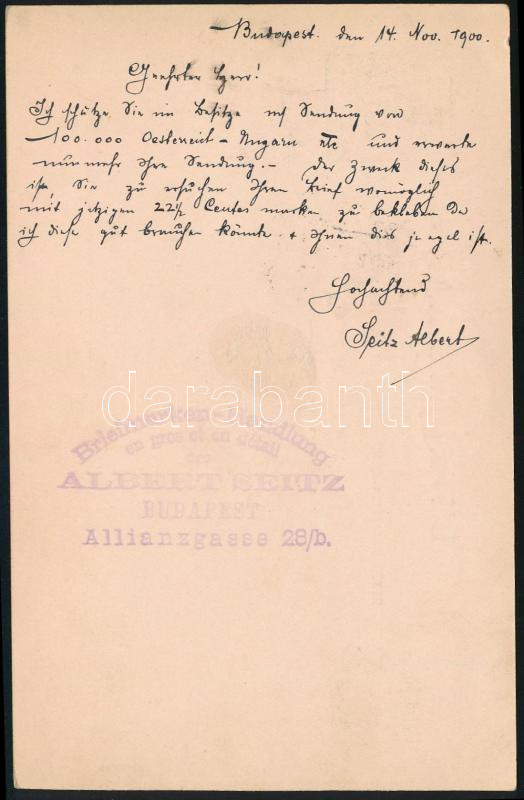 Budapest. den 14. Nov. 1900.
Geehrter Herr!
Ich schätze Sie im Besitze m/ Sendung von
100.000 Oesterreich-Ungarn etc und erwarte
nunmehr Ihre Sendung.- Der Zweck dieses
ist, Sie zu ersuchen Ihren Brief womöglich
mit jetzigen 22½ Centes marken zu bekleben Da
ich diese gut brauchen könnte + Ihnen dies ja egal ist.
Hochachtend
Seitz Albert
darabanth
Briefmarken-Handlung
en gros et en détail
des
ALBERT SEITZ
BUDAPEST
Allianzgasse 28/b.